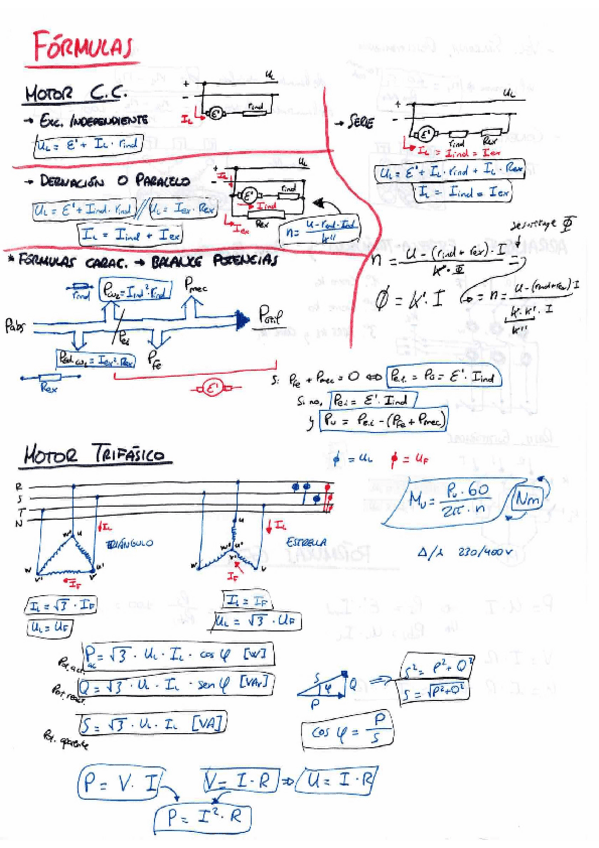 FÓRMULAS
MOTOR C.C.
→ EXC. INDEPENDIENTE
U_L = E' + I_L · r_ind
+ U_L
-
I_L E' r_ind
→ SERIE
+ U_L
-
E' r_ind R_ex
I_L = I_ind = I_ex
U_L = E' + I_L · r_ind + I_L · R_ex
I_L = I_ind = I_ex
→ DERIVACIÓN O PARALELO
U_L = E' + I_ind · r_ind // U_L = I_ex · R_ex
I_L = I_ind + I_ex
+ U_L
-
I_L E' r_ind
I_ind
I_ex R_ex
n = U - r_ind · I_ind / k''
Φ
n = U - (r_ind + r_ex) · I / k' · Φ =
Φ = k' · I → n = U - (r_ind + r_ex) I / k · k' · I
k''
* FÓRMULAS CARAC. → BALANCE POTENCIAS
r_ind P_cu = I_ind² · r_ind P_mec
P_abs P_ei P_útil
P_cu = I_ex² · R_ex P_Fe
R_ex E'
Si P_Fe + P_mec = 0 ⇔ P_e.i. = P_u = E' · I_ind
Si no, P_e.i = E' · I_ind
y P_u = P_e.i - (P_Fe + P_mec)
MOTOR TRIFÁSICO
ϕ = U_L ϕ = U_F
R
S
T
N
I_L
TRIÁNGULO
I_F
I_L
ESTRELLA
I_F
M_u = P_u · 60 / 2π · n [Nm]
Δ/λ 230/400 V
I_L = √3 · I_F
U_L = U_F
I_L = I_F
U_L = √3 · U_F
Pot. act. P_ac = √3 · U_L · I_L · cos φ [W]
Pot. react. Q = √3 · U_L · I_L · sen φ [VAr]
Pot. aparente S = √3 · U_L · I_L [VA]
S φ Q P
S² = P² + Q²
S = √P² + Q²
cos φ = P / S
P = V · I V = I · R ⇒ U = I · R
P = I² · R